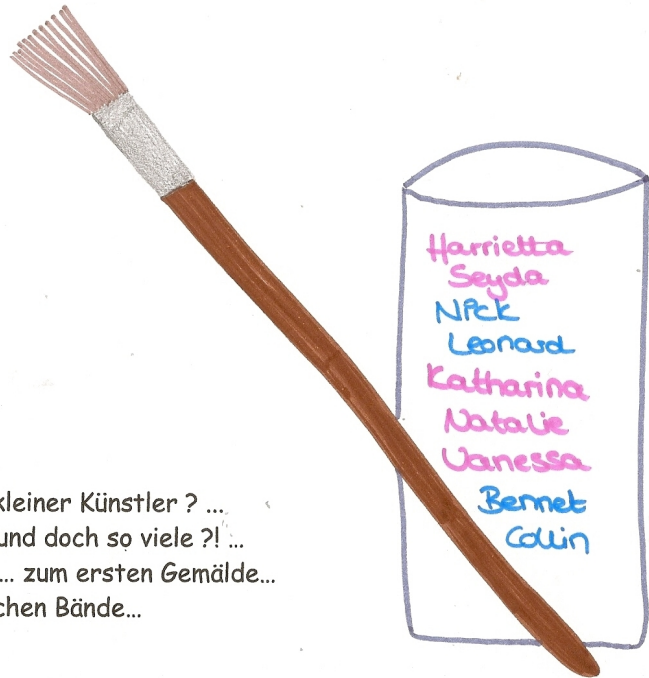 Harrietta
Seyda
Nick
Leonard
Katharina
Natalie
Vanessa
Bennet
Collin
kleiner Künstler ? ...
und doch so viele ?! ...
... zum ersten Gemälde...
chen Bände...